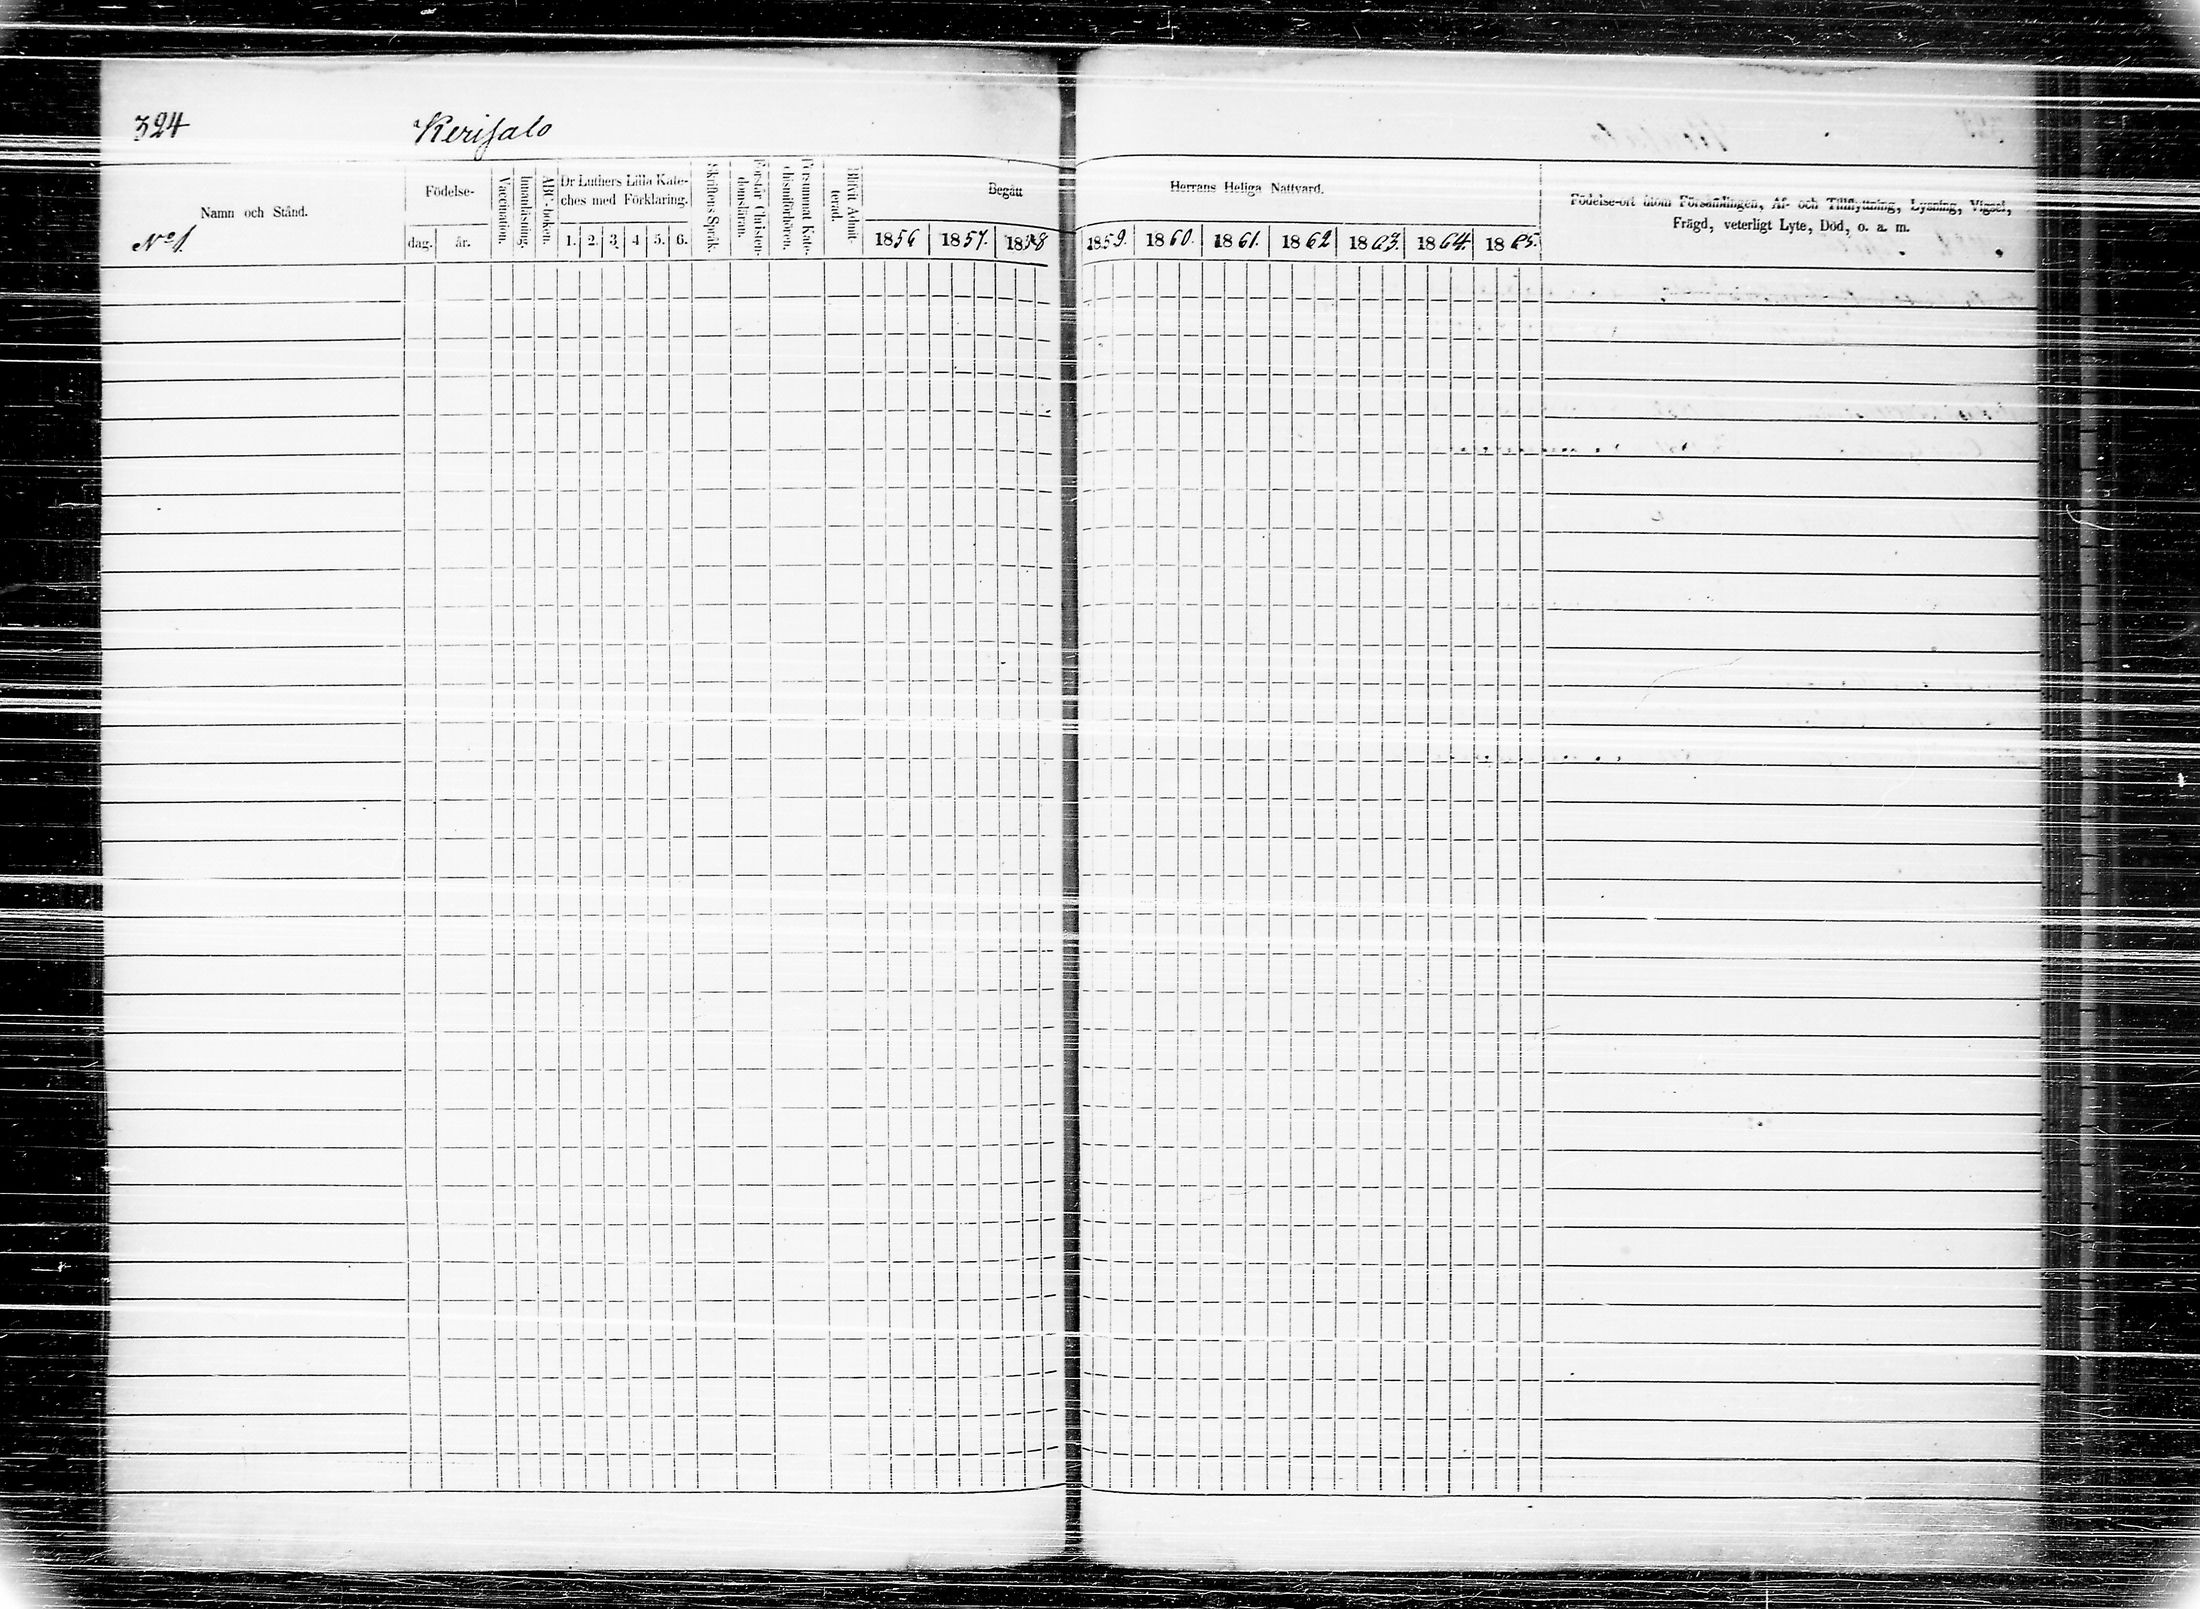 324 Kerisalo
Namn och Stånd.
No 1
Födelse-
dag. år.
Vaccination.
Innanläsning.
ABC-boken.
Dr Luthers Lilla Kate-
ches med Förklaring.
1. 2. 3. 4 5. 6.
Skriftens Språk.
Förstår Christen-
domsläran.
Försummat Kate-
chismiförhören.
Blifvit Admit-
terad.
Begått Herrans Heliga Nattvard.
1856 1857. 1858 1859. 1860. 1861. 1862 1863. 1864. 1865.
Födelse-ort utom Församlingen, Af- och Tillflyttning, Lysning, Vigsel,
Frägd, veterligt Lyte, Död, o. a. m.